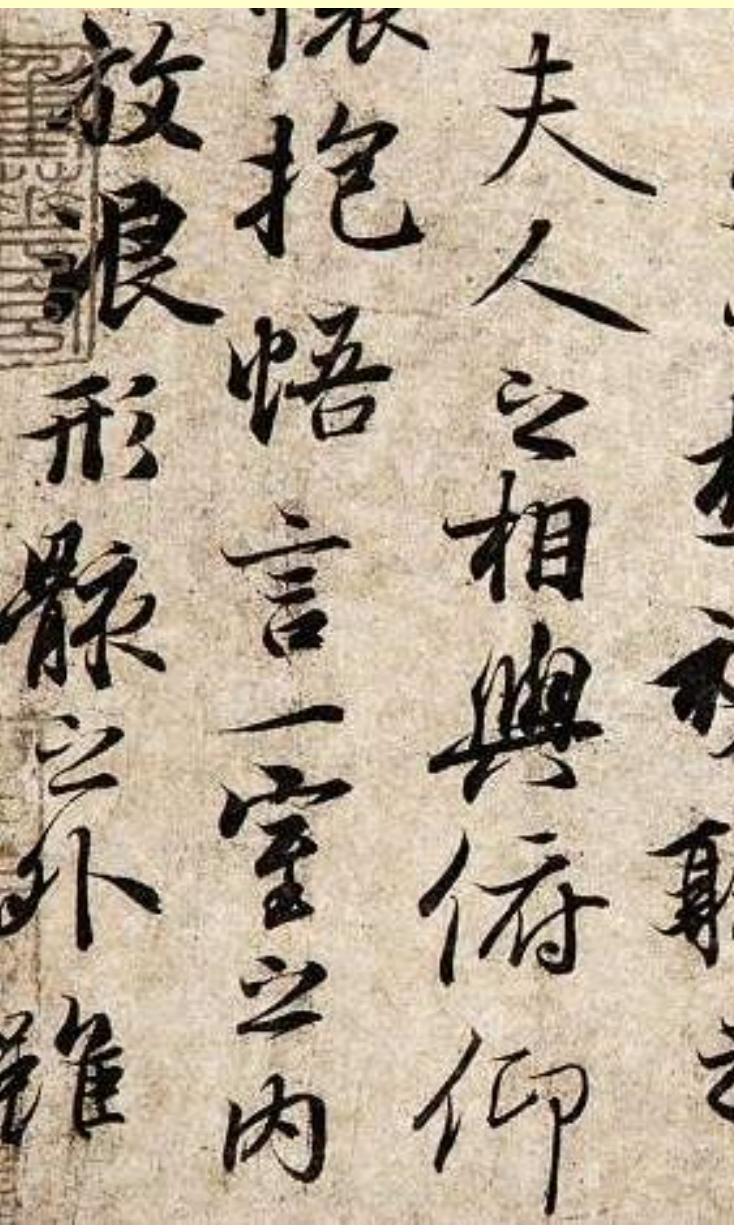 夫人之相與俯仰
懷抱悟言一室之内
放浪形骸之外雖